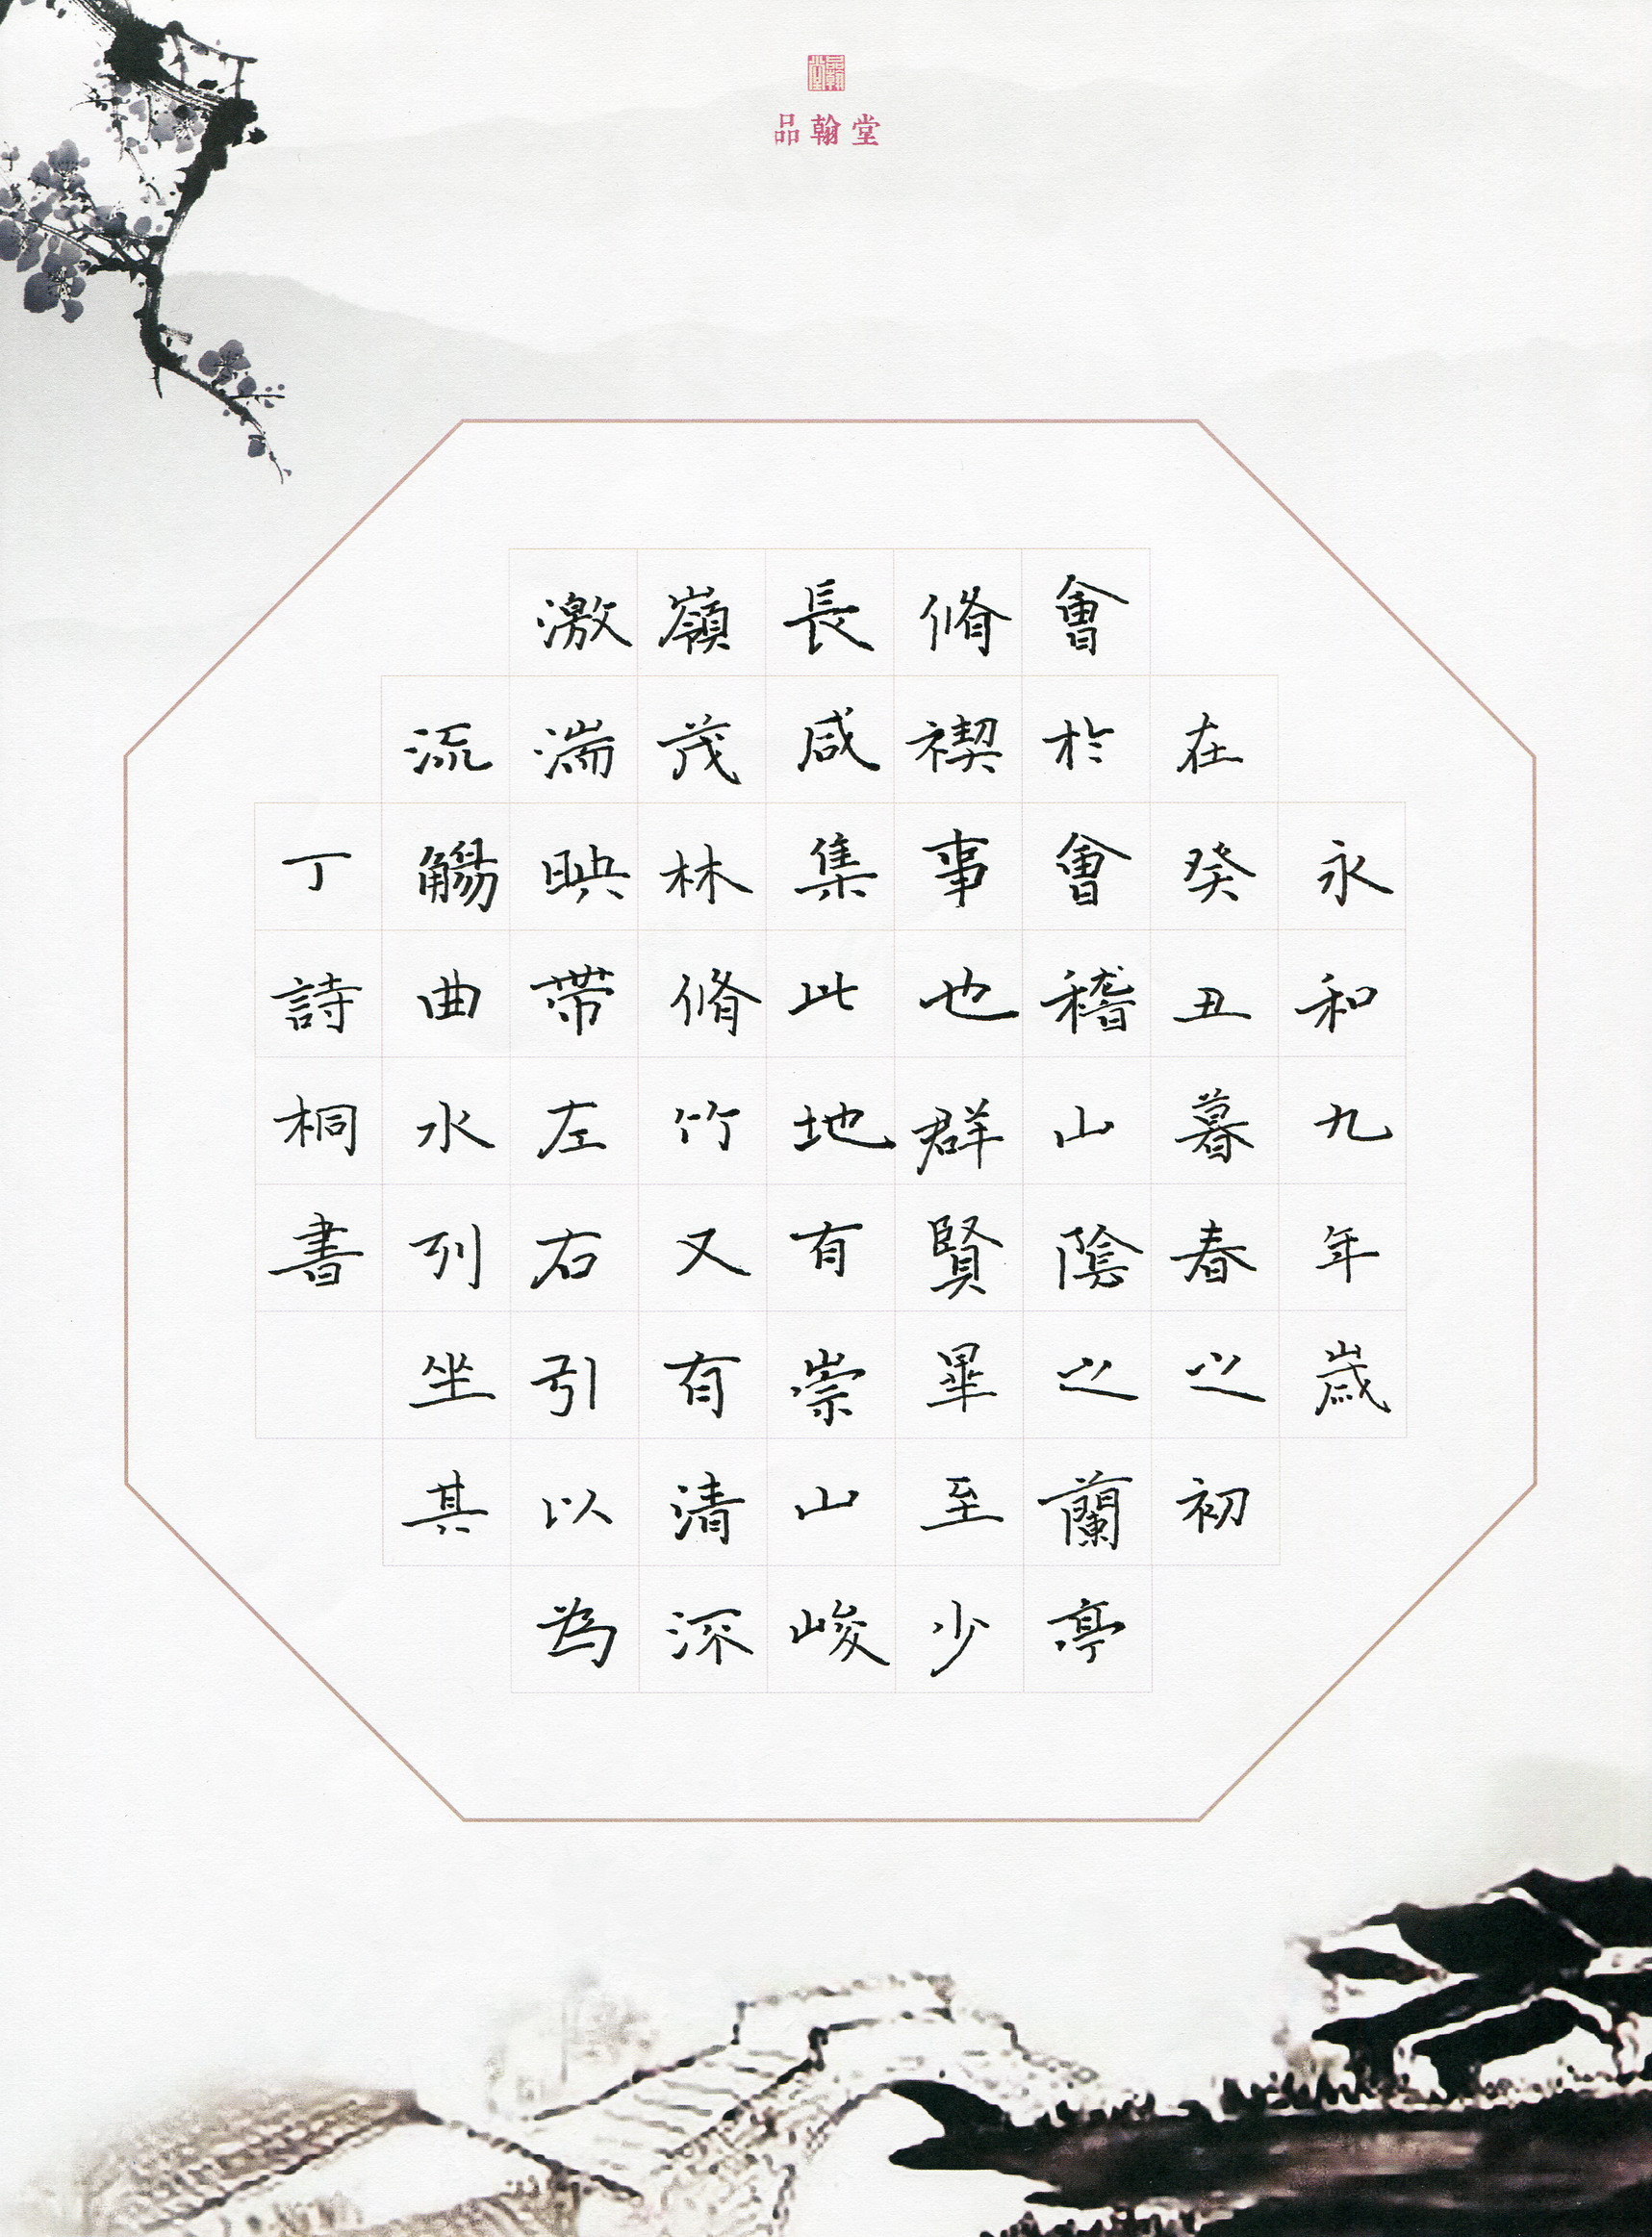 品翰堂
品翰堂
永和九年歲
在癸丑暮春之初
會於會稽山陰之蘭亭
脩禊事也群賢畢至少
長咸集此地有崇山峻
嶺茂林脩竹又有清深
激湍映帶左右引以為
流觴曲水列坐其
丁詩桐書